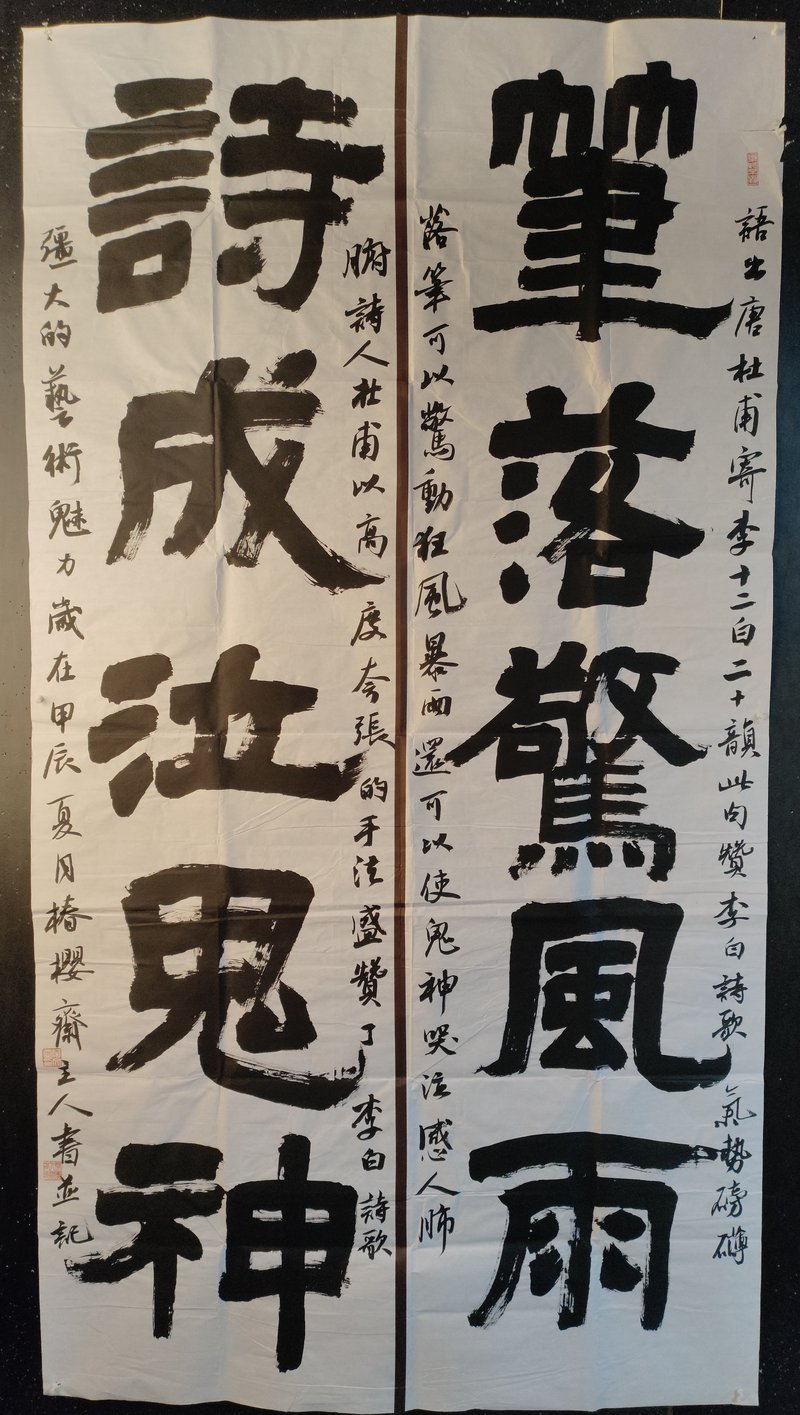 筆落驚風雨
詩成泣鬼神
語出唐杜甫寄李十二白二十韻此句贊李白詩歌氣勢磅礴
落筆可以驚動狂風暴雨還可以使鬼神哭泣感人肺
腑詩人杜甫以高度夸張的手法盛贊了李白詩歌
彊大的藝術魅力歲在甲辰夏月椿櫻齋主人書並記